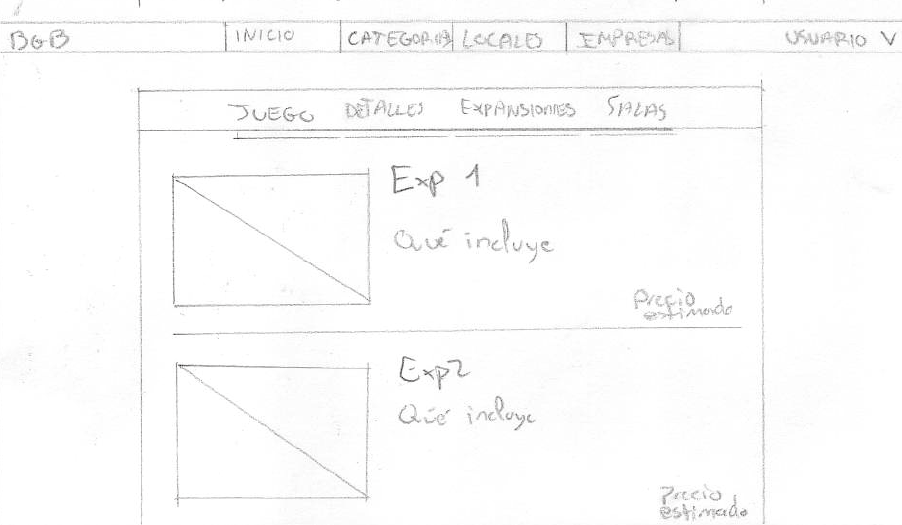 BGB INICIO CATEGORIAS LOCALES EMPRESAS USUARIO V
JUEGO DETALLES EXPANSIONES SALAS
Exp 1
Qué incluye
Precio
estimado
Exp2
Qué incluye
Precio
estimado